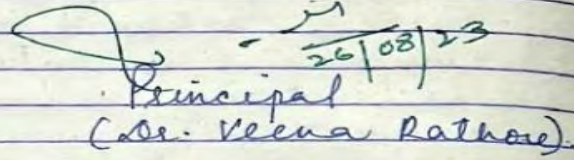 26/08/23
Principal
(Dr. Veena Rathore).